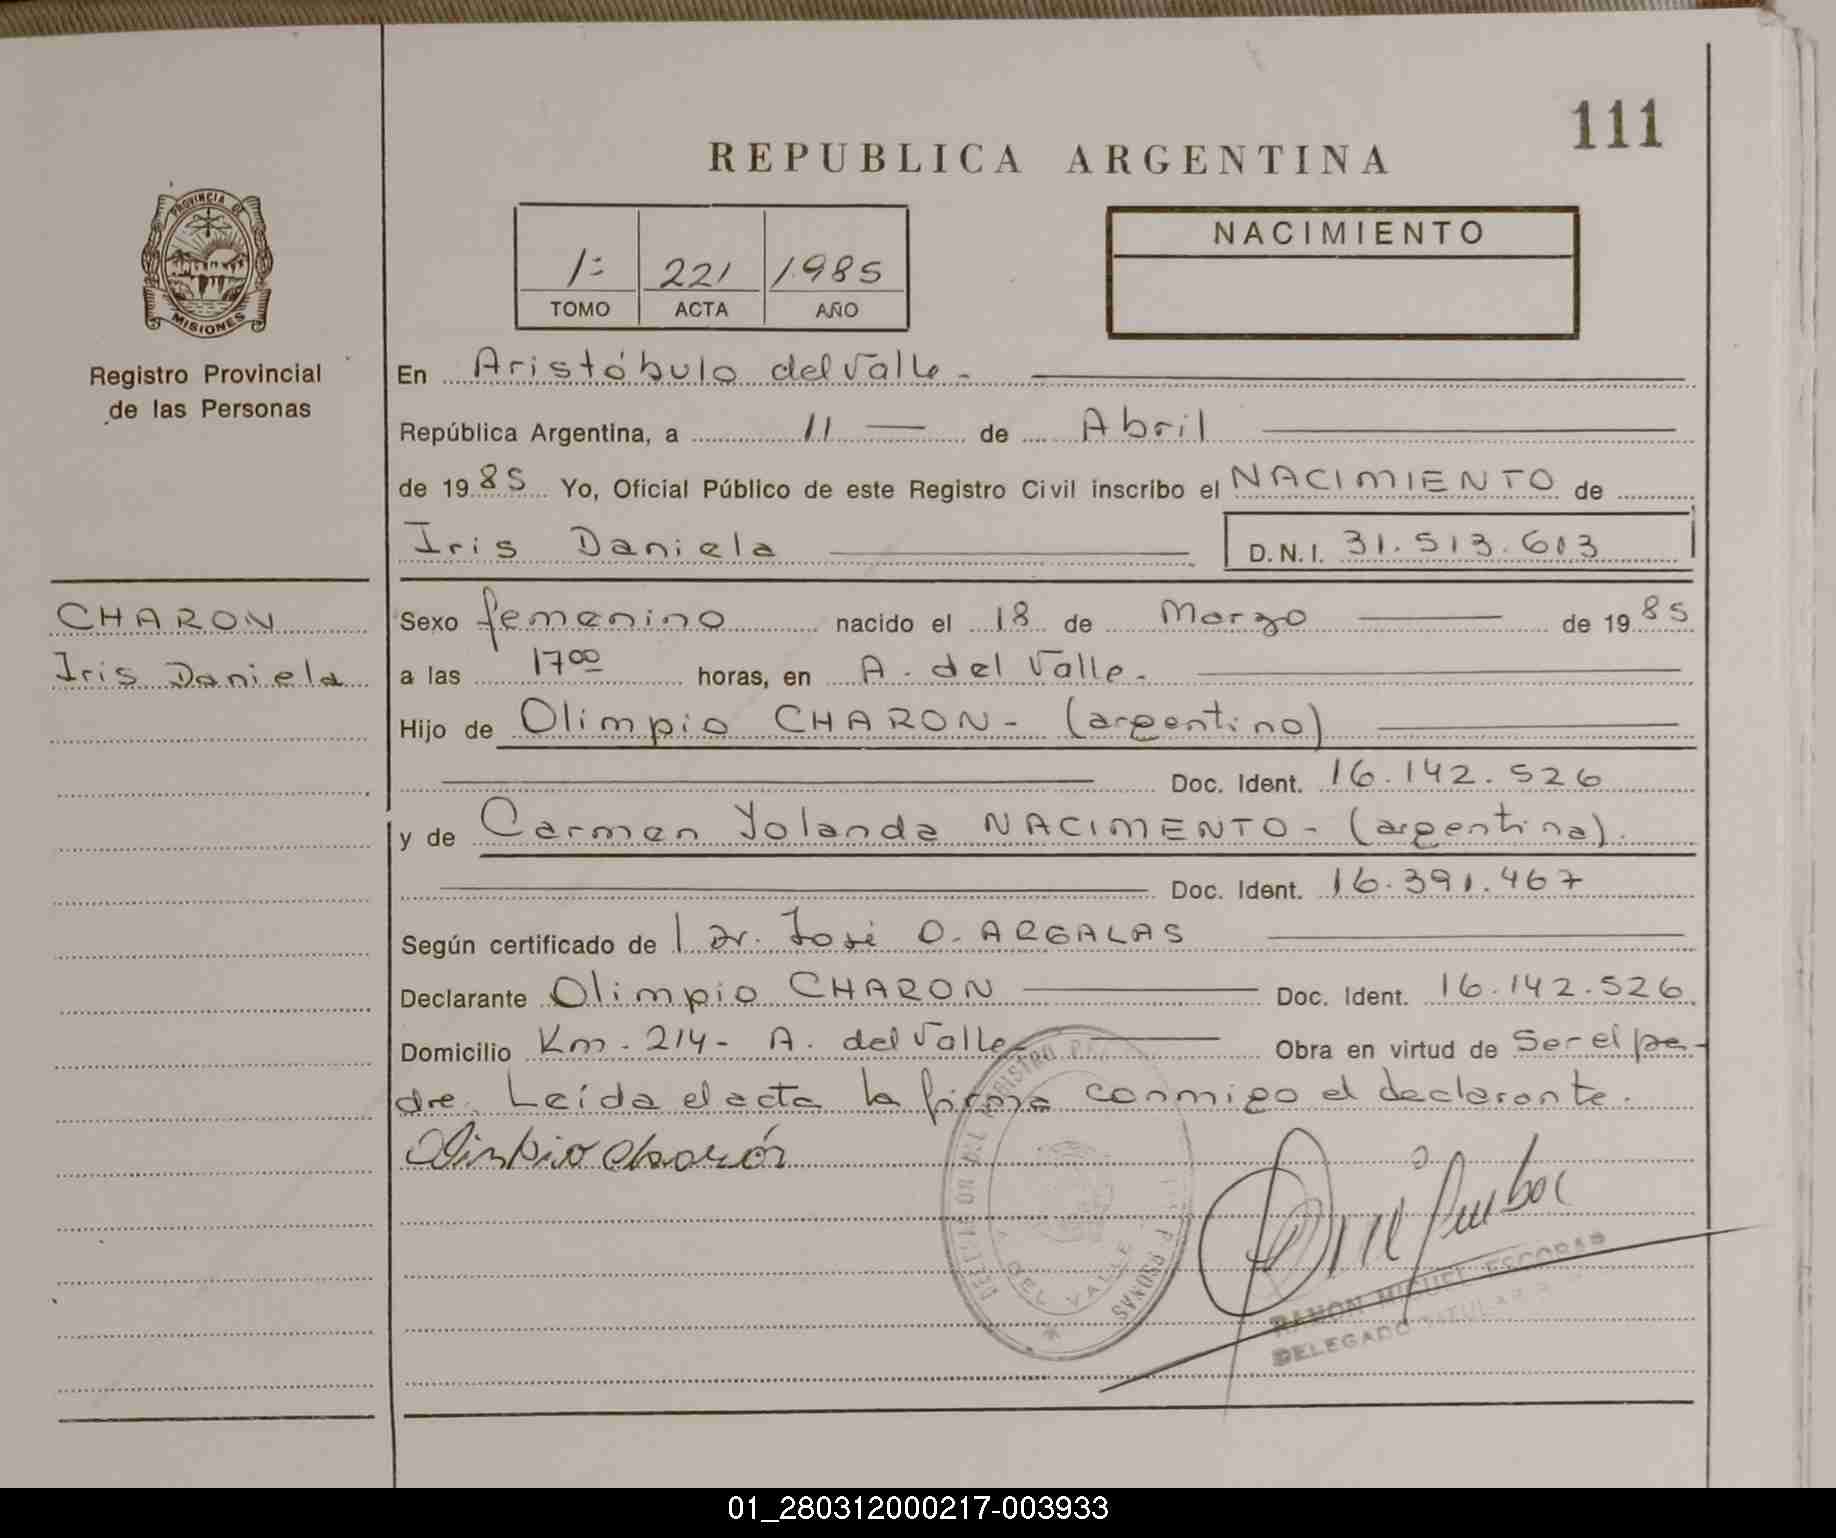 111
REPUBLICA ARGENTINA
PROVINCIA DE
MISIONES
Registro Provincial
de las Personas
1º 221 1985
TOMO ACTA AÑO
NACIMIENTO
En Aristóbulo del Valle.
República Argentina, a 11 de Abril
de 1985 Yo, Oficial Público de este Registro Civil inscribo el NACIMIENTO de
Iris Daniela D.N.I. 31.513.613
CHARON
Iris Daniela
Sexo femenino nacido el 18 de Marzo de 1985
a las 17 00 horas, en A. del Valle.
Hijo de Olimpio CHARON- (argentino)
Doc. Ident. 16.142.526
y de Carmen Yolanda NACIMENTO- (argentina).
Doc. Ident. 16.391.467
Según certificado de Dr. José O. ARGALAS
Declarante Olimpio CHARON Doc. Ident. 16.142.526
Domicilio Km. 214- A. del Valle Obra en virtud de Ser el pa-
dre. Leída el acta la firma conmigo el declarante.
Olimpio Charón
DEL REGISTRO PERSONAS
DEL VALLE
RAMON MIGUEL ESCOBAR
DELEGADO TITULAR
01_280312000217-003933